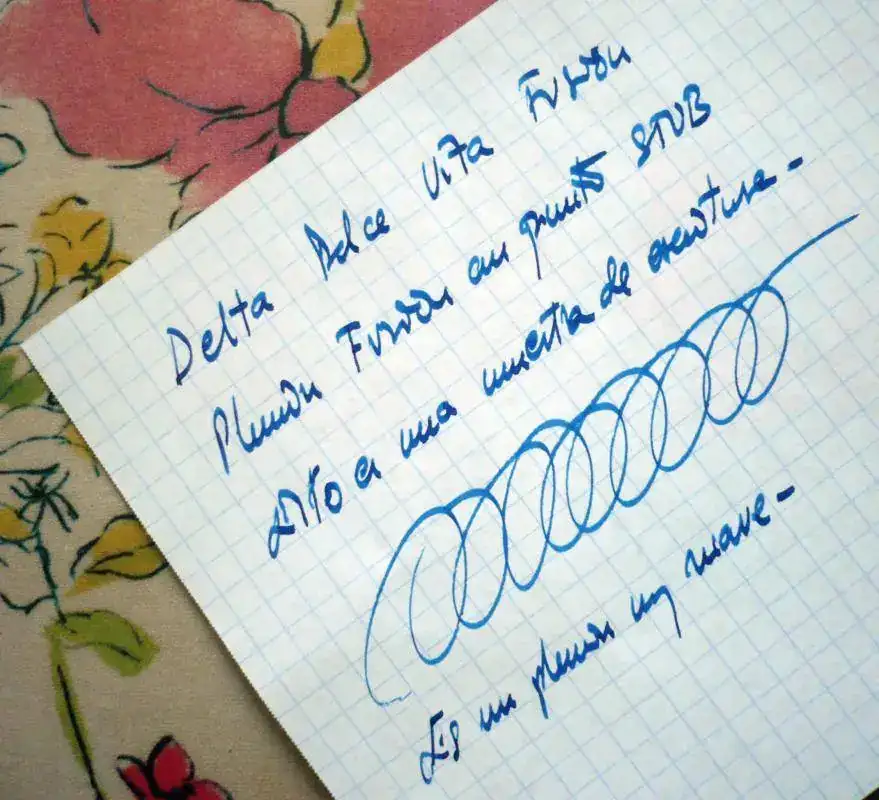 Delta Dolce Vita Fusion
Plumín Fusión en punto STUB
Esto es una muestra de escritura -
Es un plumín muy suave -